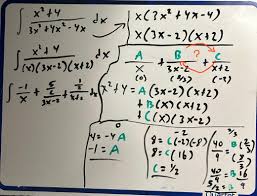 ∫ x²+4 / 3x³+4x²-4x dx
∫ x²+4 / (x)(3x-2)(x+2) dx
∫ -1/x + 5/6 / 3x-2 + 1/2 / x+2 dx
x(3x²+4x-4)
x(3x-2)(x+2)
A/x + B/3x-2 + C/x+2
?
(0) (2/3) (-2)
x²+4 = A(3x-2)(x+2)
+B(x)(x+2)
+C(x)(3x-2)
0
4 = -4A
-1 = A
-2
8 = C(-2)(-8)
8 = C(16)
C = 1/2
2/3
40/9 = B(2/3)(8/3)
40/9 = B 16/9